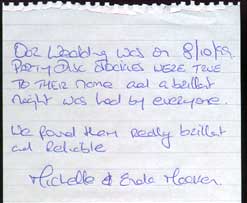 Our Wedding was on 8/10/99.
PARTY Disc Services WERE TRUE
TO THEIR Name and a brilliant
night was had by everyone.
We found them really brilliant
and Reliable
Michelle & Enda